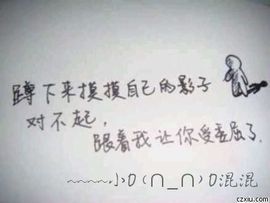 蹲下来摸摸自己的影子
对不起，
跟着我让你受委屈了.
﹏﹏﹏小O(∩_∩)O混混
czxiu.com